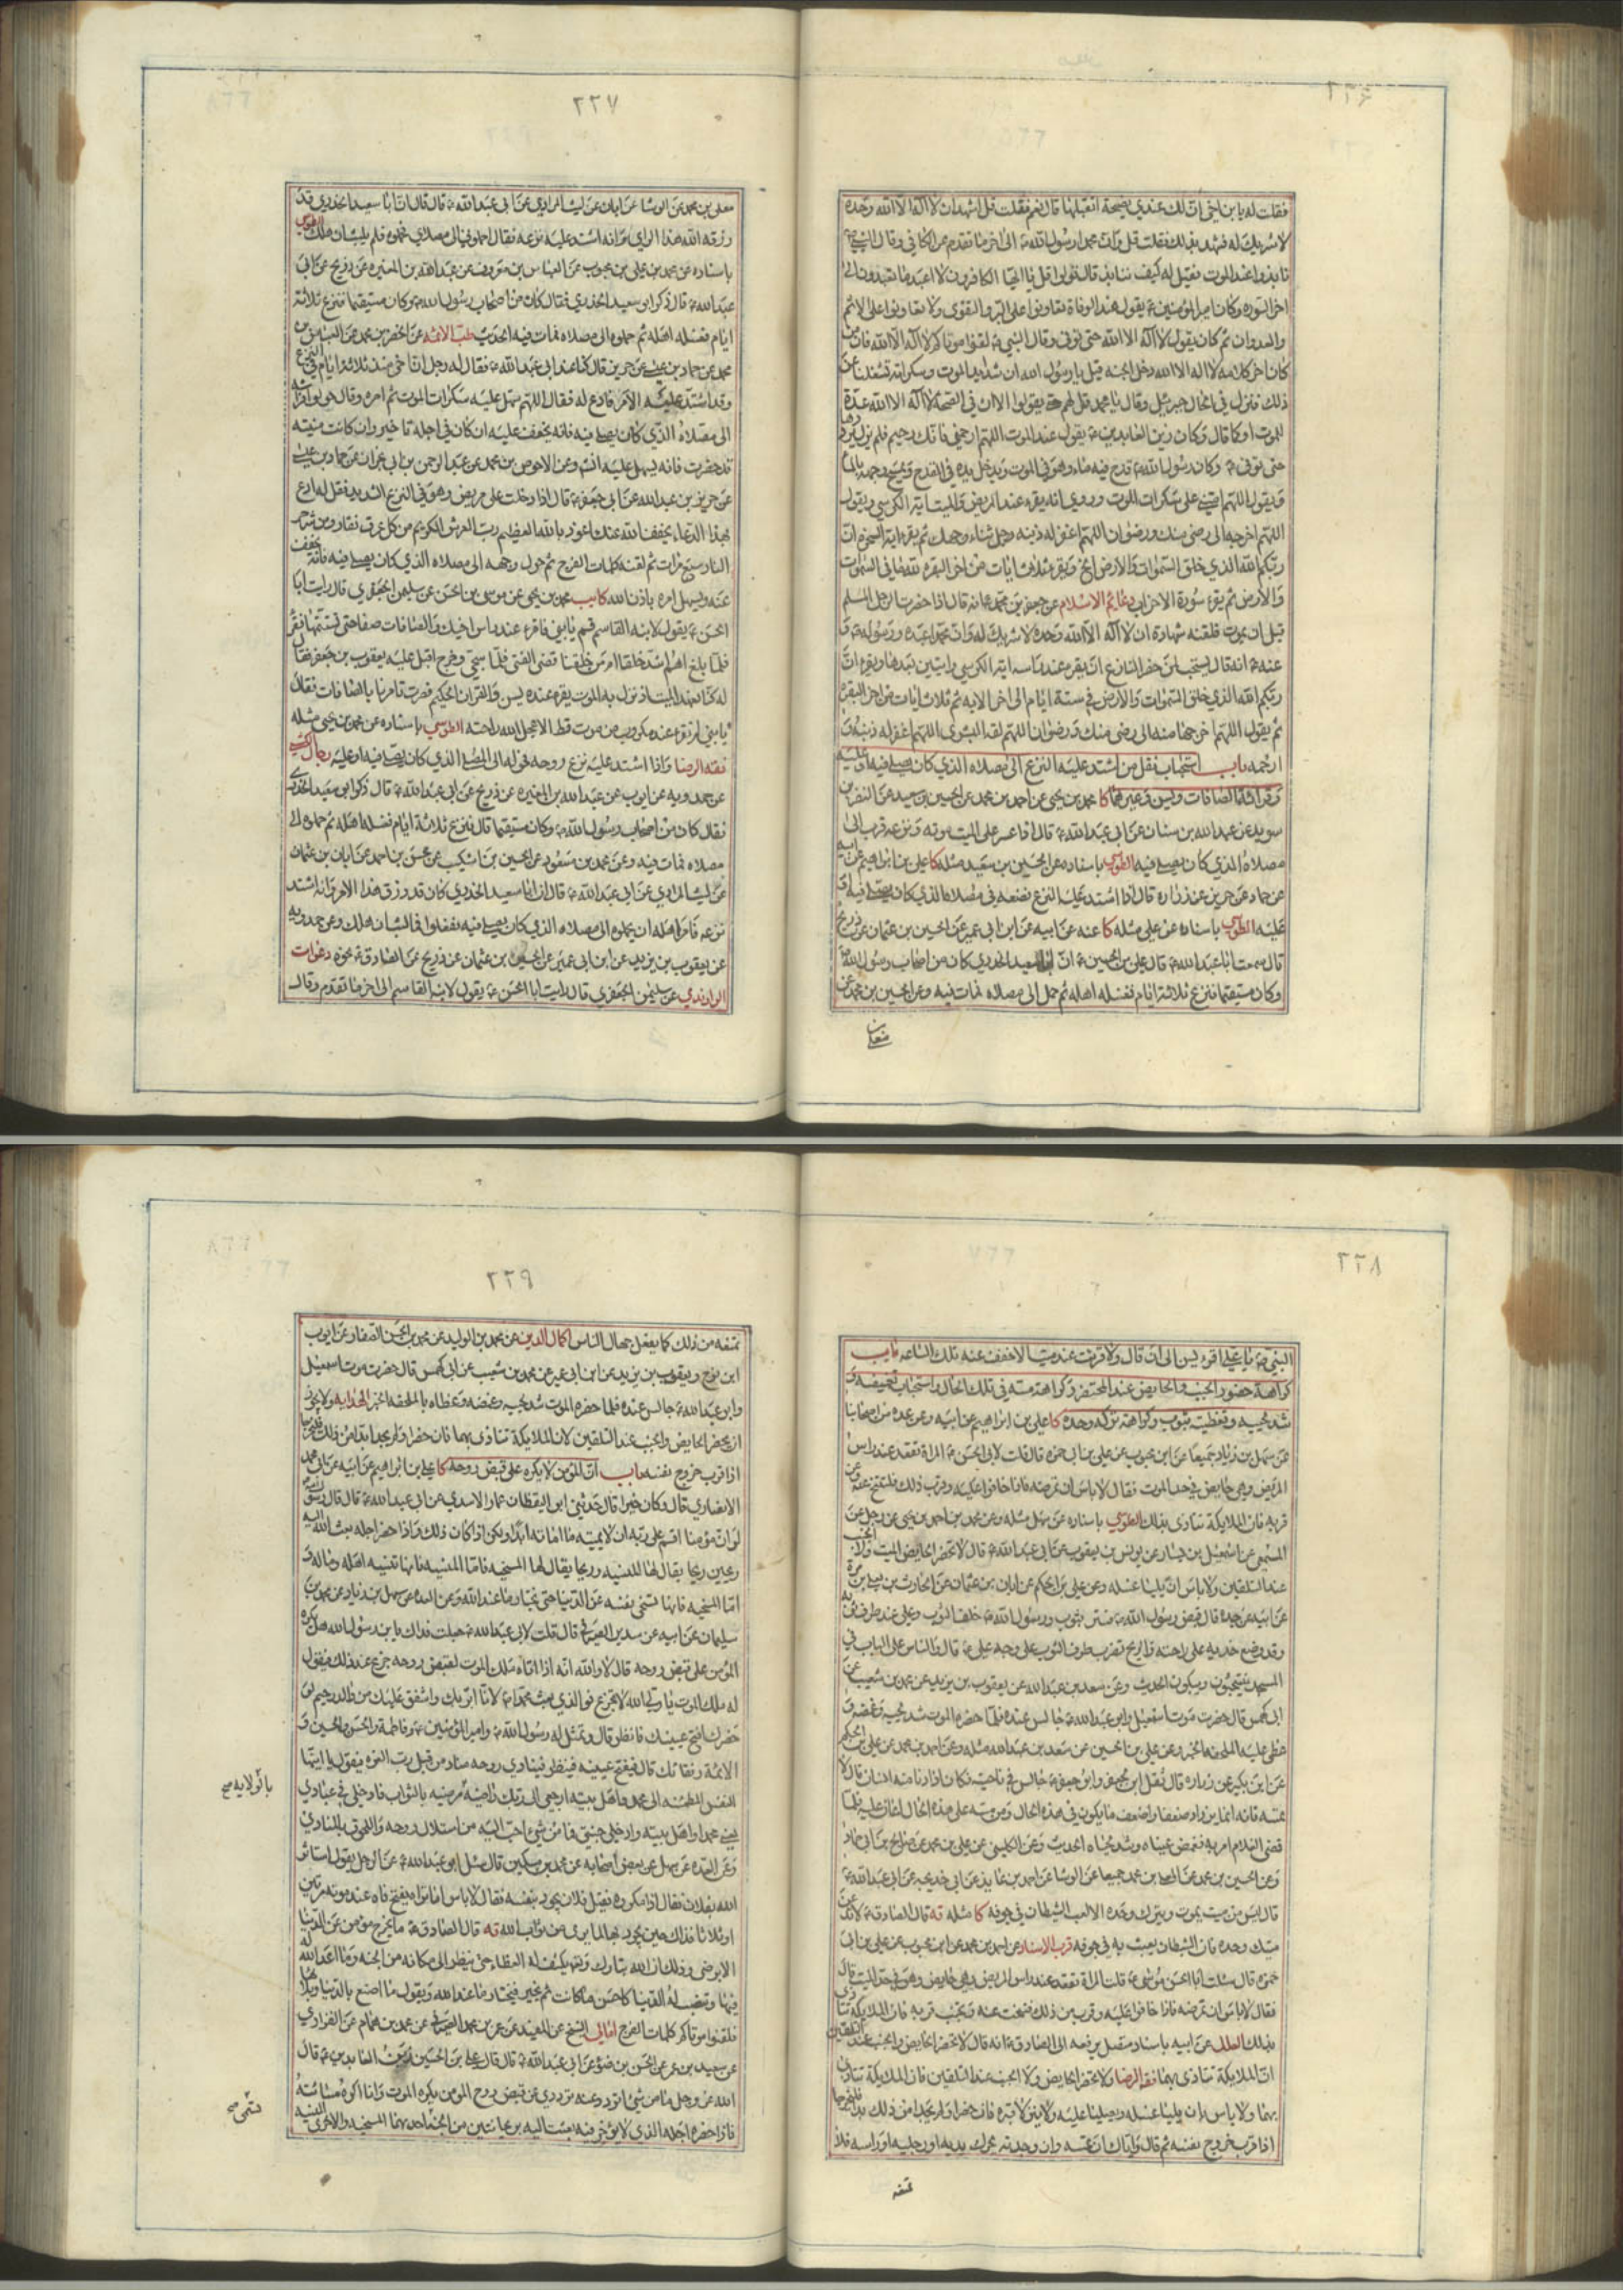 ٢٢۶
فقلت له يا بن اخي ان لك عندي نصيحة اتقبلها قال نعم فقلت قل اشهد ان لا اله الا الله وحده
لا شريك له فشهد بذلك فقلت قل وان محمدا رسول الله الى اخر ما تقدم عن الكافي وقال
نابذوا عند الموت فقيل له كيف ننابذ قال قولوا قل يا ايها الكافرون لا اعبد ما تعبدون الى
اخر السورة وكان امير المؤمنين ع يقول عند الوفاة تعاونوا على البر والتقوى ولا تعاونوا على الاثم
والعدوان ثم كان يقول لا اله الا الله حتى توفي وقال النبي ص لقنوا موتاكم لا اله الا الله فان من
كان اخر كلامه لا اله الا الله دخل الجنة قيل يا رسول الله ان شدايد الموت وسكراته تشغلنا عن
ذلك فنزل في الحال جبرئيل وقال يا محمد قل لهم حتى يقولوا الان في الصحة لا اله الا الله عدة
للموت او كما قال وكان زين العابدين ع يقول عند الموت اللهم ارحمني فانك رحيم فلم يزل يرددها
حتى توفي ع وكان رسول الله ص قدح فيه ماء وهو في الموت ويدخل يده في القدح ويمسح وجهه بالماء
ويقول اللهم اعني على سكرات الموت وروي انه يقرء عند المريض والميت اية الكرسي ويقول
اللهم اخرجه الى رضى منك ورضوان اللهم اغفر له ذنبه وجل ثناء وجهك ثم يقرء اية السخرة ان
ربكم الله الذي خلق السموات والارض الخ ويقرء ثلاث ايات من اخر البقرة لله ما في السموات
والارض ثم يقرء سورة الاحزاب دعائم الاسلام عن جعفر بن محمد ع انه قال اذا حضرت الرجل المسلم
قبل ان يموت فلقنه شهادة ان لا اله الا الله وحده لا شريك له وان محمدا عبده ورسوله و
عنه ع انه قال يستحب لمن حضر المنازع ان يقرء عند راسه اية الكرسي وايتين بعدها ويقرء ان
ربكم الله الذي خلق السموات والارض في ستة ايام الى اخر الاية ثم ثلاث ايات من اخر البقرة
ثم يقول اللهم اخرجها منه الى رضى منك ورضوان اللهم لقه البشرى اللهم اغفر له ذنبه و
ارحمه باب استحباب نقل من اشتد عليه النزع الى مصلاه الذي كان يصلي فيه او عليه
وقراءة الصافات ويس وغيرهما كا محمد بن يحيى عن احمد بن محمد عن الحسين بن سعيد عن النضر بن
سويد عن عبد الله بن سنان عن ابي عبد الله ع قال اذا عسر على الميت موته ونزعه قرب الى
مصلاه الذي كان يصلي فيه الطوسي باسناده عن الحسين بن سعيد مثله كا علي بن ابراهيم عن ابيه
عن حماد عن حريز عن زرارة قال اذا اشتد عليه النزع فضعه في مصلاه الذي كان يصلي فيه او
عليه الطوسي باسناده عن علي مثله كا عنه عن ابيه عن ابن ابي عمير عن الحسين بن عثمان عن ذريح
قال سمعت ابا عبد الله ع قال علي بن الحسين ع ان ابا سعيد الخدري كان من اصحاب رسول الله ص
وكان مستقيما فنزع ثلاثة ايام فغسله اهله ثم حمل الى مصلاه فمات فيه وعن الحسين بن محمد عن
٢٢٧
معلى بن محمد عن الوشا عن ابان عن ليث المرادي عن ابي عبد الله ع قال قال ان ابا سعيد الخدري قد
رزقه الله هذا الراي وانه اشتد عليه نزعه فقال احملوني الى مصلاي فحملوه فلم يلبث ان هلك الطوسي
باسناده عن محمد بن علي بن محبوب عن العباس بن معروف عن عبد الله بن المغيرة عن ذريح عن ابي
عبد الله ع قال ذكر ابو سعيد الخدري فقال كان من اصحاب رسول الله ص وكان مستقيما فنزع ثلاثة
ايام فغسله اهله ثم حملوه الى مصلاه فمات فيه الحديث طب الائمة عن الخضر بن محمد عن العباس بن
محمد عن حماد بن عيسى عن حريز قال كنا عند ابي عبد الله ع فقال له رجل ان اخي منذ ثلاثة ايام في النزع
وقد اشتد عليه الامر فادع له فقال اللهم سهل عليه سكرات الموت ثم امره وقال حولوا فراشه
الى مصلاه الذي كان يصلي فيه فانه يخفف عليه ان كان في اجله تاخير وان كانت منيته
قد حضرت فانه يسهل عليه انشاء وعن الاحوص بن محمد عن عبد الرحمن بن ابي نجران عن حماد بن عيسى
عن حريز بن عبد الله عن ابي جعفر ع قال اذا دخلت على مريض وهو في النزع الشديد فقل له ادع
بهذا الدعاء يخفف الله عنك اعوذ بالله العظيم رب العرش الكريم من كل عرق نفار ومن شر حر
النار سبع مرات ثم لقنه كلمات الفرج ثم حول وجهه الى مصلاه الذي كان يصلي فيه فانه يخفف
عنه ويسهل امره باذن الله كا محمد بن يحيى عن موسى بن الحسن عن سليمن الجعفري قال رايت ابا
الحسن ع يقول لابنه القاسم قم يا بني فاقرء عند راس اخيك والصافات صفا حتى تستتمها فقرء
فلما بلغ اهم اشد خلقا ام من خلقنا قضى الفتى فلما سجي وخرج اقبل عليه يعقوب بن جعفر فقال
له كنا نعهد الميت اذ نزل به الموت يقرء عنده يس والقران الحكيم فصرت تامرنا بالصافات فقال
يا بني لم تقرء عند مكروب من موت قط الا عجل الله راحته الطوسي باسناده عن محمد بن يحيى مثله
فقه الرضا واذا اشتد عليه نزع روحه فحوله الى المصلى الذي كان يصلي فيه او عليه رجال الكشي
عن حمدويه عن ايوب عن عبد الله بن المغيرة عن ذريح عن ابي عبد الله ع قال ذكر ابو سعيد الخدري
فقال كان من اصحاب رسول الله ص وكان مستقيما قال فنزع ثلاثة ايام فغسله اهله ثم حملوه الى
مصلاه فمات فيه وعن محمد بن مسعود عن الحسين بن اشكيب عن محسن بن احمد عن ابان بن عثمان
عن ليث المرادي عن ابي عبد الله ع قال ان ابا سعيد الخدري كان قد رزق هذا الامر وانه اشتد
نزعه فامر اهله ان يحملوه الى مصلاه الذي كان يصلي فيه ففعلوا فما لبث ان هلك وعن حمدويه
عن يعقوب بن يزيد عن ابن ابي عمير عن الحسين بن عثمان عن ذريح عن الصادق ع نحوه دعوات
الراوندي عن سليمن الجعفري قال رايت ابا الحسن ع يقول لابنه القاسم الى اخر ما تقدم وقال
٢٢٨
النبي ص يا علي اقرء يس الى ان قال ولا قرئت عند ميت الا خفف عنه تلك الساعة باب
كراهة حضور الجنب والحايض عند المحتضر وكراهة مسه في تلك الحال واستحباب تغميضه و
شد لحييه وتغطيته بثوب وكراهة تركه وحده كا علي بن ابراهيم عن ابيه وعن عدة من اصحابنا
عن سهل بن زياد جميعا عن ابن محبوب عن علي بن ابي حمزة قال قلت لابي الحسن ع المراة تقعد عند راس
المريض وهي حايض في حد الموت فقال لا باس ان تمرضه فاذا خافوا عليه وقرب ذلك فلتتنح عنه وعن
قربه فان الملايكة تتاذى بذلك الطوسي باسناده عن سهل مثله وعن محمد بن احمد بن يحيى عن رجل عن
المسمعي عن اسمعيل بن يسار عن يونس بن يعقوب عن ابي عبد الله ع قال لا تحضر الحايض الميت ولا الجنب
عند التلقين ولا باس ان يليا غسله وعن علي بن الحكم عن ابان بن عثمان عن الحارث بن يعلى بن مرة
عن ابيه عن جده قال قبض رسول الله ص فستر بثوب ورسول الله ص خلف الثوب وعلي عند طرف ثوبه
وقد وضع خديه على راحته والريح تضرب طرف الثوب على وجه علي ع قال والناس على الباب في
المسجد ينتحبون ويبكون الحديث وعن سعد بن عبد الله عن يعقوب بن يزيد عن محمد بن شعيب عن
ابي كهمس قال حضرت موت اسمعيل وابو عبد الله ع جالس عنده فلما حضره الموت شد لحييه وغمضه و
غطى عليه الملحفة الخبر وعن علي بن الحسين عن سعد بن عبد الله مثله وعن احمد بن محمد عن علي بن الحكم
عن ابن بكير عن زرارة قال ثقل ابن لجعفر وابو جعفر ع جالس في ناحية فكان اذا دنا منه انسان قال لا
تمسه فانه انما يزداد ضعفا واضعف ما يكون في هذه الحال ومن مسه على هذه الحال اعان عليه فلما
قضى الغلام امر به فغمض عيناه وشد لحياه الحديث وعن الكليني عن علي بن محمد عن صالح بن ابي حماد
وعن الحسين بن محمد عن المعلى بن محمد جميعا عن الوشا عن احمد بن عايذ عن ابي خديجة عن ابي عبد الله ع
قال ليس من ميت يموت ويترك وحده الا لعب الشيطان في جوفه كا مثله قه قال الصادق ع لا تدعن
ميتك وحده فان الشيطان يعبث به في جوفه قرب الاسناد عن احمد بن محمد عن ابن محبوب عن علي بن ابي
حمزة قال سئلت ابا الحسن موسى ع قلت المراة تقعد عند راس المريض وهي حايض وهو في حد الميت قال
فقال لا باس ان تمرضه فاذا خافوا عليه وقرب من ذلك فتنحت عنه وتجنب قربه فان الملايكة تتاذى
بذلك العلل عن ابيه باسناد متصل يرفعه الى الصادق ع انه قال لا تحضر الحايض والجنب عند التلقين
ان الملايكة تتاذى بهما فقه الرضا ولا تحضر الحايض ولا الجنب عند التلقين فان الملايكة تتاذى
بهما ولا باس بان يليا غسله ويصليا عليه ولا ينزلا قبره فان حضرا ولم يجدا من ذلك بدا فليخرجا
اذا قرب خروج نفسه ثم قال واياك ان تمسه وان وجدته يحرك يديه او رجليه او راسه فلا
تمنعه
٢٢٩
تمنعه من ذلك كما يفعل جهال الناس اكمال الدين عن محمد بن الوليد عن محمد بن الحسن الصفار عن ايوب
ابن نوح ويعقوب بن يزيد عن ابن ابي عمير عن محمد بن شعيب عن ابي كهمس قال حضرت موت اسمعيل
وابو عبد الله ع جالس عنده فلما حضره الموت شد لحييه وغمضه وغطاه بالملحفة الخبر الهداية ولا يجوز
ان يحضر الحايض والجنب عند التلقين لان الملايكة تتاذى بهما فان حضرا ولم يجدا بدا من ذلك فليخرجا
اذا قرب خروج نفسه باب ان المؤمن لا يكره على قبض روحه كا علي بن ابراهيم عن ابيه عن ابي محمد
الانصاري قال وكان خيرا قال حدثني ابو اليقظان عمار الاسدي عن ابي عبد الله ع قال قال رسول الله
لو ان مؤمنا اقسم على ربه ان لا يميته ما اماته ابدا ولكن اذا كان ذلك واذا حضر اجله بعث الله اليه
ريحين ريحا يقال لها المنسية وريحا يقال لها المسخية فاما المنسية فانها تنسيه اهله وماله و
اما المسخية فانها تسخي نفسه عن الدنيا حتى يختار ما عند الله وعن العدة عن سهل بن زياد عن محمد بن
سليمان عن ابيه عن سدير الصيرفي قال قلت لابي عبد الله ع جعلت فداك يا بن رسول الله هل يكره
المؤمن على قبض روحه قال لا والله انه اذا اتاه ملك الموت لقبض روحه جزع عند ذلك فيقول
له ملك الموت يا ولي الله لا تجزع فوالذي بعث محمدا ص لانا ابر بك واشفق عليك من والد رحيم لو
حضرك افتح عينيك فانظر قال ويمثل له رسول الله ص وامير المؤمنين ع وفاطمة والحسن والحسين و
الائمة رفقائك قال فيفتح عينيه فينظر فينادي روحه مناد من قبل رب العزة فيقول يا ايتها
النفس المطمئنة الى محمد واهل بيته ارجعي الى ربك راضية مرضية بالثواب فادخلي في عبادي
بالولاية صح
يعني محمدا واهل بيته وادخلي جنتي فما من شيء احب اليه من استلال روحه واللحوق بالمنادي
وعن العدة عن سهل عن بعض اصحابه عن محمد بن سكين قال سئل ابو عبد الله ع عن الرجل يقول استاثر
الله بفلان فقال ذا مكروه فقيل فلان يجود بنفسه فقال لا باس اما تراه يفتح فاه عند موته مرتين
او ثلاثا فذاك حين يجود بها لما يرى من ثواب الله قه قال الصادق ع ما يخرج مؤمن عن الدنيا
الا برضى وذلك ان الله تبارك وتعالى يكشف له الغطاء حتى ينظر الى مكانه من الجنة وما اعد الله له
فيها وتنصب له الدنيا كاحسن ما كانت ثم يخير فيختار ما عند الله ويقول ما اصنع بالدنيا وبلائها
فلقنوا موتاكم كلمات الفرج امالي الشيخ عن المفيد عن عمر بن محمد الصيرفي عن محمد بن همام عن الفزاري
عن سعيد بن عمر عن الحسن بن ضوء عن ابي عبد الله ع قال قال علي بن الحسين زين العابدين ع قال
الله عز وجل ما من شيء اتردد عنه ترددي عن قبض روح المؤمن يكره الموت وانا اكره مسائته
فاذا حضره اجله الذي لا يؤخر فيه بعثت اليه بريحانتين من الجنة احدهما المسخية والاخرى المنسية